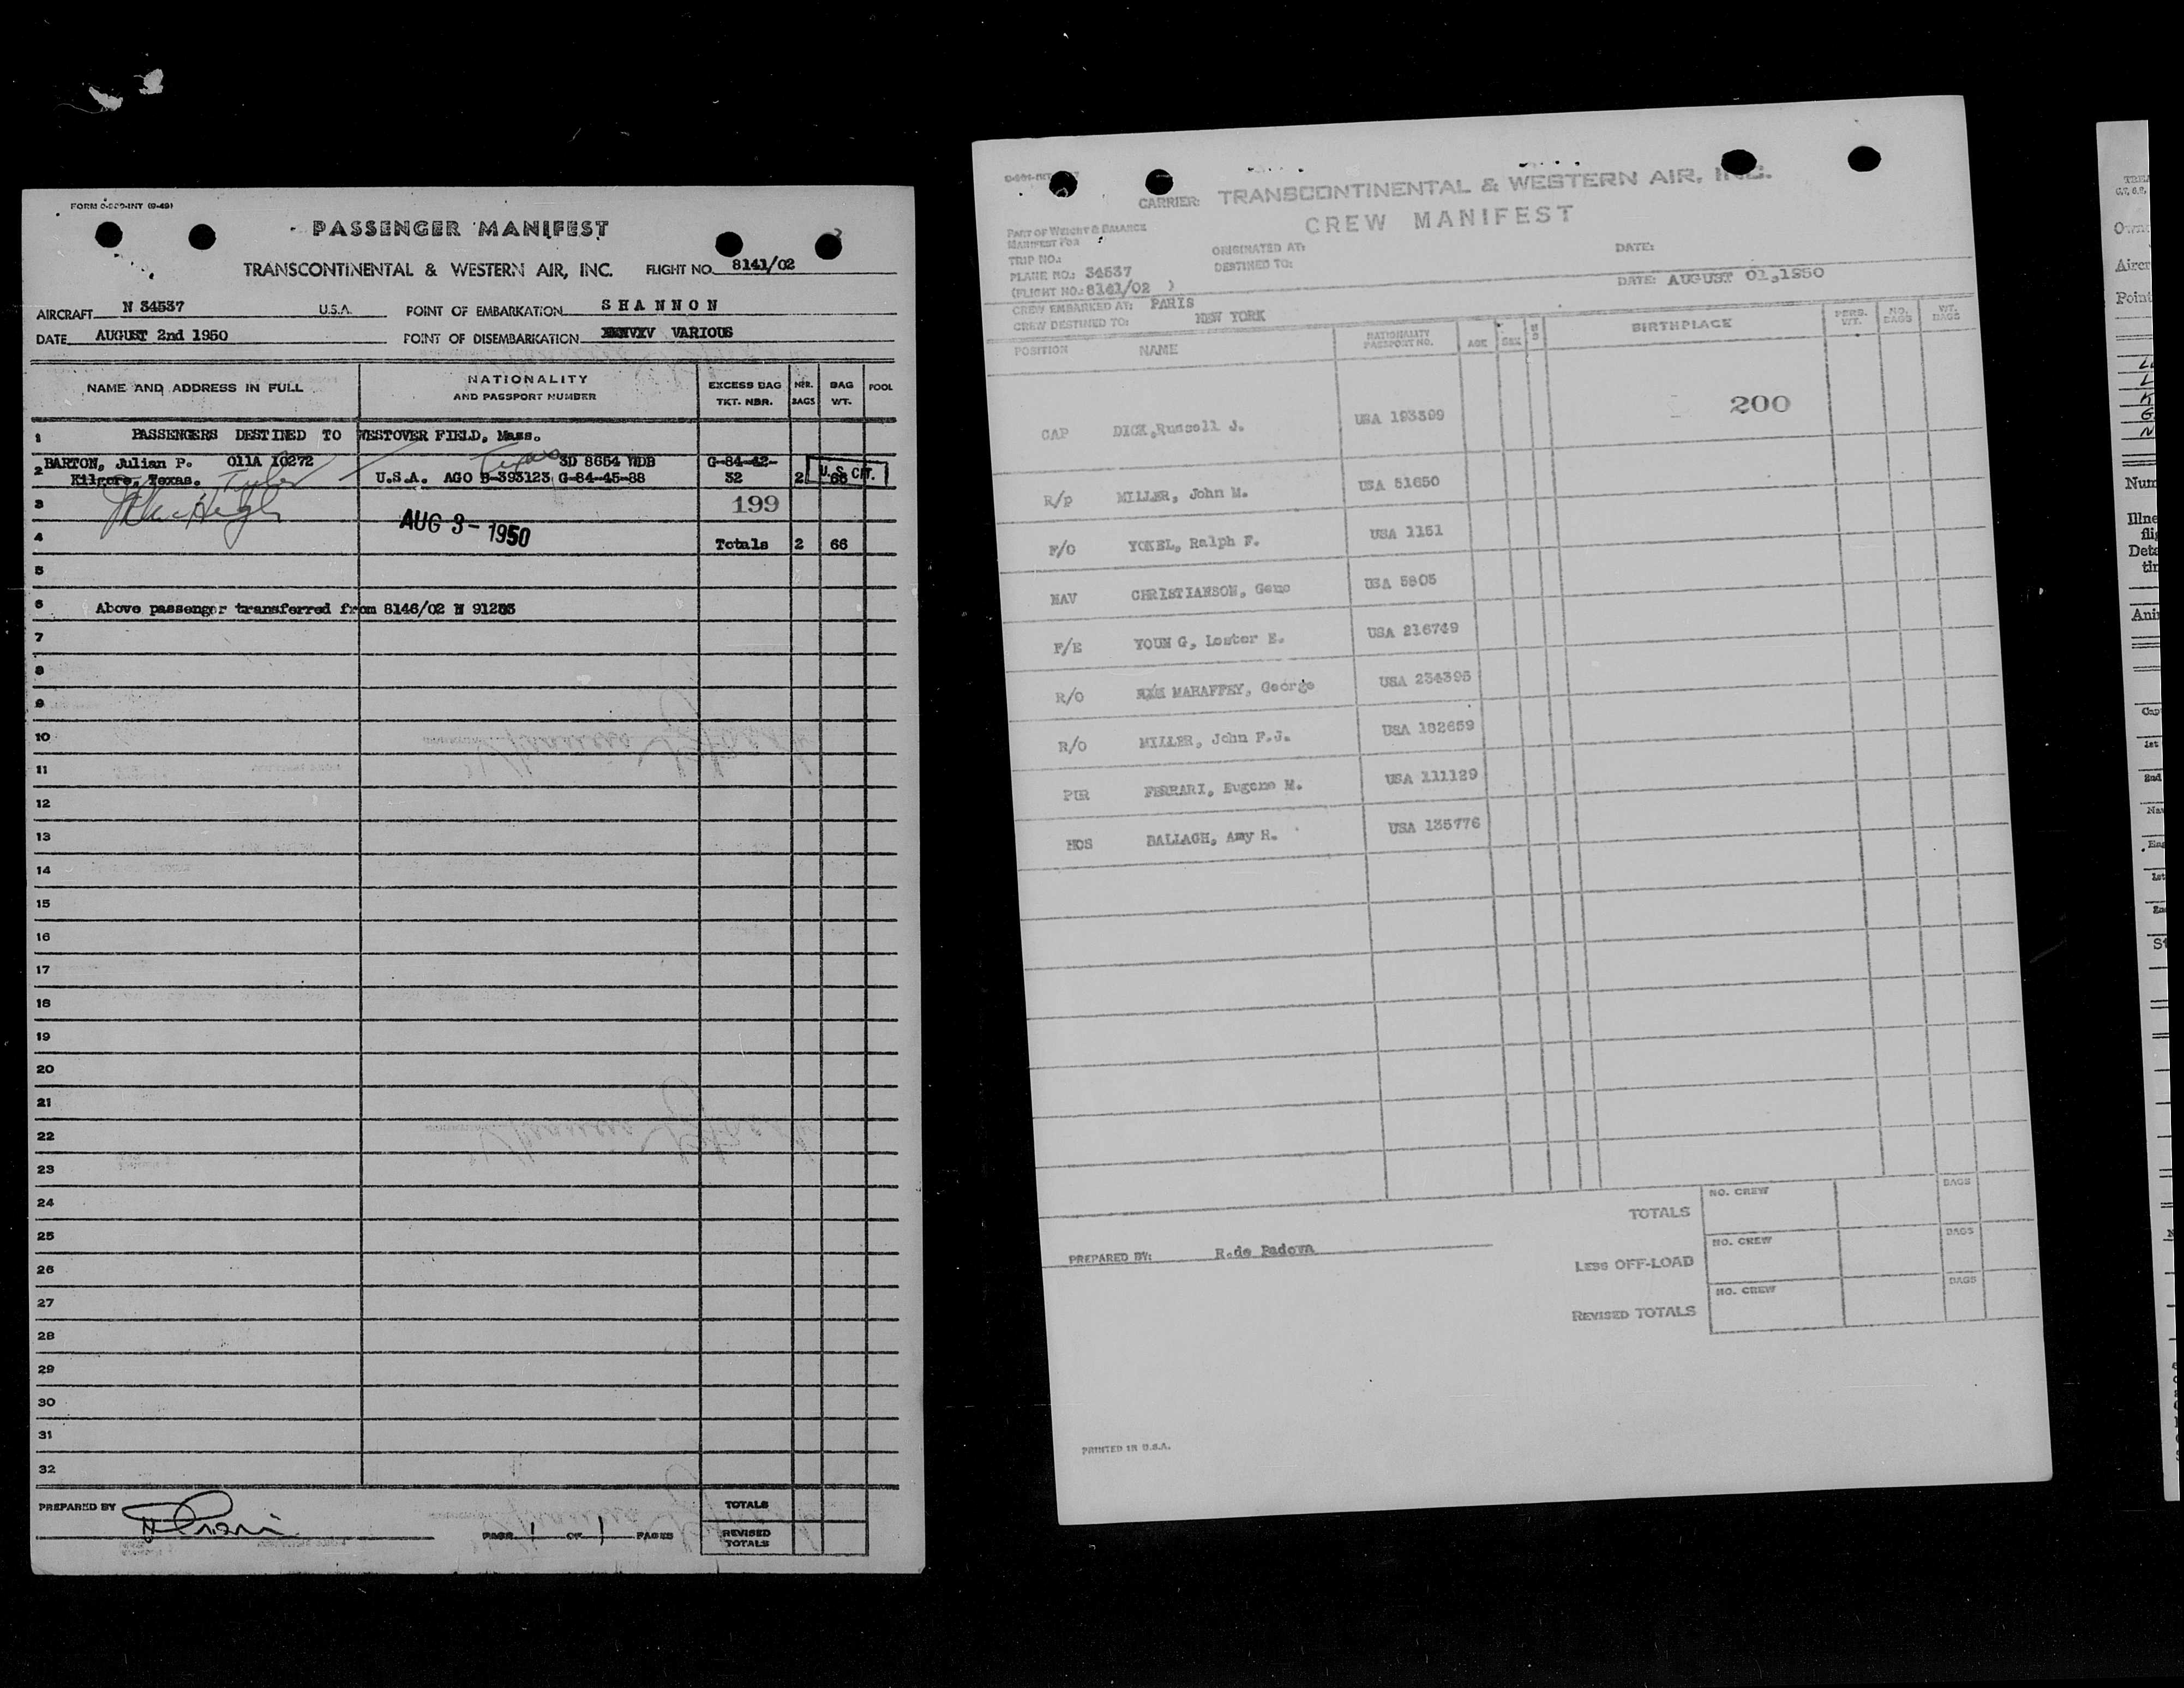 FORM O-200-INT (9-49)
PASSENGER MANIFEST
TRANSCONTINENTAL & WESTERN AIR, INC. FLIGHT NO. 8141/02
AIRCRAFT N 34537 U.S.A. POINT OF EMBARKATION SHANNON
DATE AUGUST 2nd 1950 POINT OF DISEMBARKATION VARIOUS
NAME AND ADDRESS IN FULL NATIONALITY AND PASSPORT NUMBER EXCESS BAG TKT. NBR. NBR. BAGS BAG WT. POOL
1 PASSENGERS DESTINED TO WESTOVER FIELD, Mass.
2 BARTON, Julian P. 011A 10272 Texas 3D 8654 WDB G-84-42- U.S. CIT.
Kilgore, Texas. Tyler U.S.A. AGO B-393123 G-84-45-88 32 2 66
3 199
AUG 3- 1950
4 Totals 2 66
5
6 Above passenger transferred from 8146/02 N
7
8
9
10
11
12
13
14
15
16
17
18
19
20
21
22
23
24
25
26
27
28
29
30
31
32
PREPARED BY PAGE 1 OF 1 PAGES
TOTALS
REVISED TOTALS
CARRIER: TRANSCONTINENTAL & WESTERN AIR, INC.
CREW MANIFEST
PART OF WEIGHT & BALANCE
MANIFEST FOR
TRIP NO.: ORIGINATED AT: DATE:
PLANE NO.: 34537 DESTINED TO:
(FLIGHT NO.: 8141/02 ) DATE: AUGUST 01,1950
CREW EMBARKED AT: PARIS
CREW DESTINED TO: NEW YORK
POSITION NAME NATIONALITY PASSPORT NO. AGE SEX BIRTHPLACE PERS. WT. NO. BAGS WT. BAGS
200
CAP DICK, Russell J. USA 193399
R/P MILLER, John M. USA 51650
F/O YOKEL, Ralph F. USA 1151
NAV CHRISTIANSON, Gene USA 5805
F/E YOUN G, Lester E. USA 216749
R/O MAHAFFEY, George USA 234395
R/O MILLER, John F.J. USA 182659
PUR FERRARI, Eugene M. USA 111129
HOS BALLAGH, Amy R. USA 135776
TOTALS NO. CREW BAGS
PREPARED BY: R.de Padova
LESS OFF-LOAD NO. CREW BAGS
REVISED TOTALS NO. CREW BAGS
PRINTED IN U.S.A.